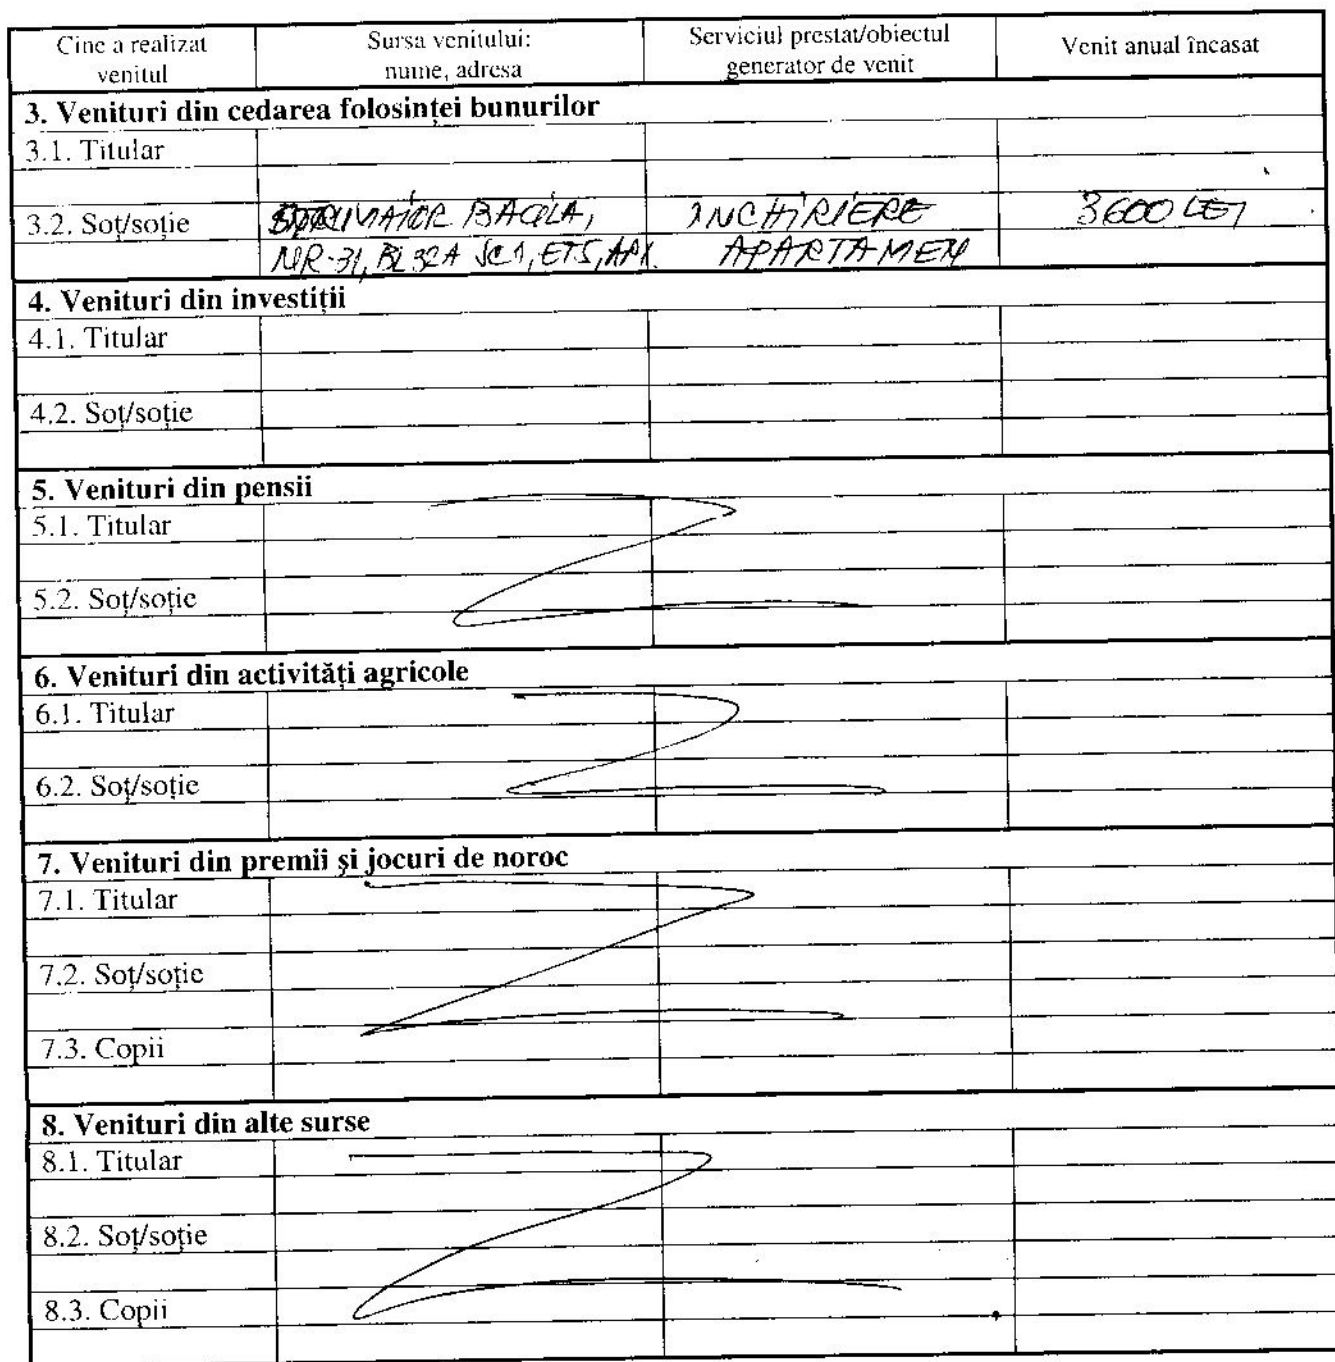 Cine a realizat venitul
Sursa venitului: nume, adresa
Serviciul prestat/obiectul generator de venit
Venit anual încasat
3. Venituri din cedarea folosinței bunurilor
3.1. Titular
3.2. Soț/soție
BACILA,
NR-31, BL 32A SC1, ET5,
INCHIRIERE
APARTAMEN
3600 LEI
4. Venituri din investiții
4.1. Titular
4.2. Soț/soție
5. Venituri din pensii
5.1. Titular
5.2. Soț/soție
6. Venituri din activități agricole
6.1. Titular
6.2. Soț/soție
7. Venituri din premii și jocuri de noroc
7.1. Titular
7.2. Soț/soție
7.3. Copii
8. Venituri din alte surse
8.1. Titular
8.2. Soț/soție
8.3. Copii